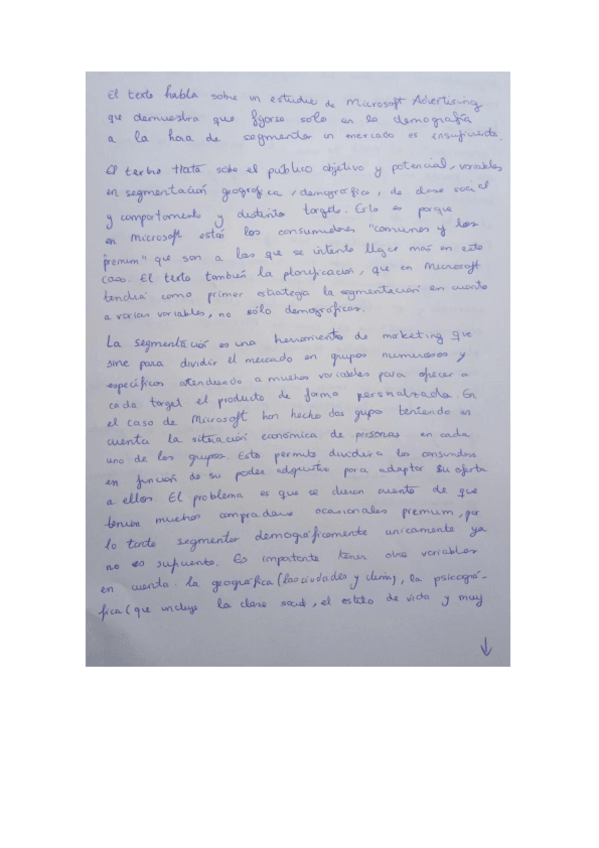 El texto habla sobre un estudio de Microsoft Advertising
que demuestra que fijarse solo en la demografía
a la hora de segmentar un mercado es insuficiente.
El texto trata sobre el público objetivo y potencial, variables
en segmentación geográfica, demográfica, de clase social
y comportamiento y distintos targets. Esto es porque
en Microsoft están los consumidores "comunes y los
premium" que son a los que se intenta llegar más en este
caso. El texto también la planificación, que en Microsoft
tendría como primer estrategia la segmentación en cuanto
a varias variables, no sólo demográficas.
La segmentación es una herramienta de marketing que
sirve para dividir el mercado en grupos numerosos y
específicos atendiendo a muchas variables para ofrecer a
cada target el producto de forma personalizada. En
el caso de Microsoft han hecho dos grupos teniendo en
cuenta la situación económica de personas en cada
uno de los grupos. Esto permite dividir a los consumidores
en función de su poder adquisitivo para adaptar su oferta
a ellos. El problema es que se dieron cuenta de que
tenían muchos compradores ocasionales premium, por
lo tanto segmentar demográficamente unicamente ya
no es suficiente. Es importante tener otras variables
en cuenta. la geográfica (las ciudades y clima), la psicográ-
fica (que incluye la clase social, el estilo de vida y muy